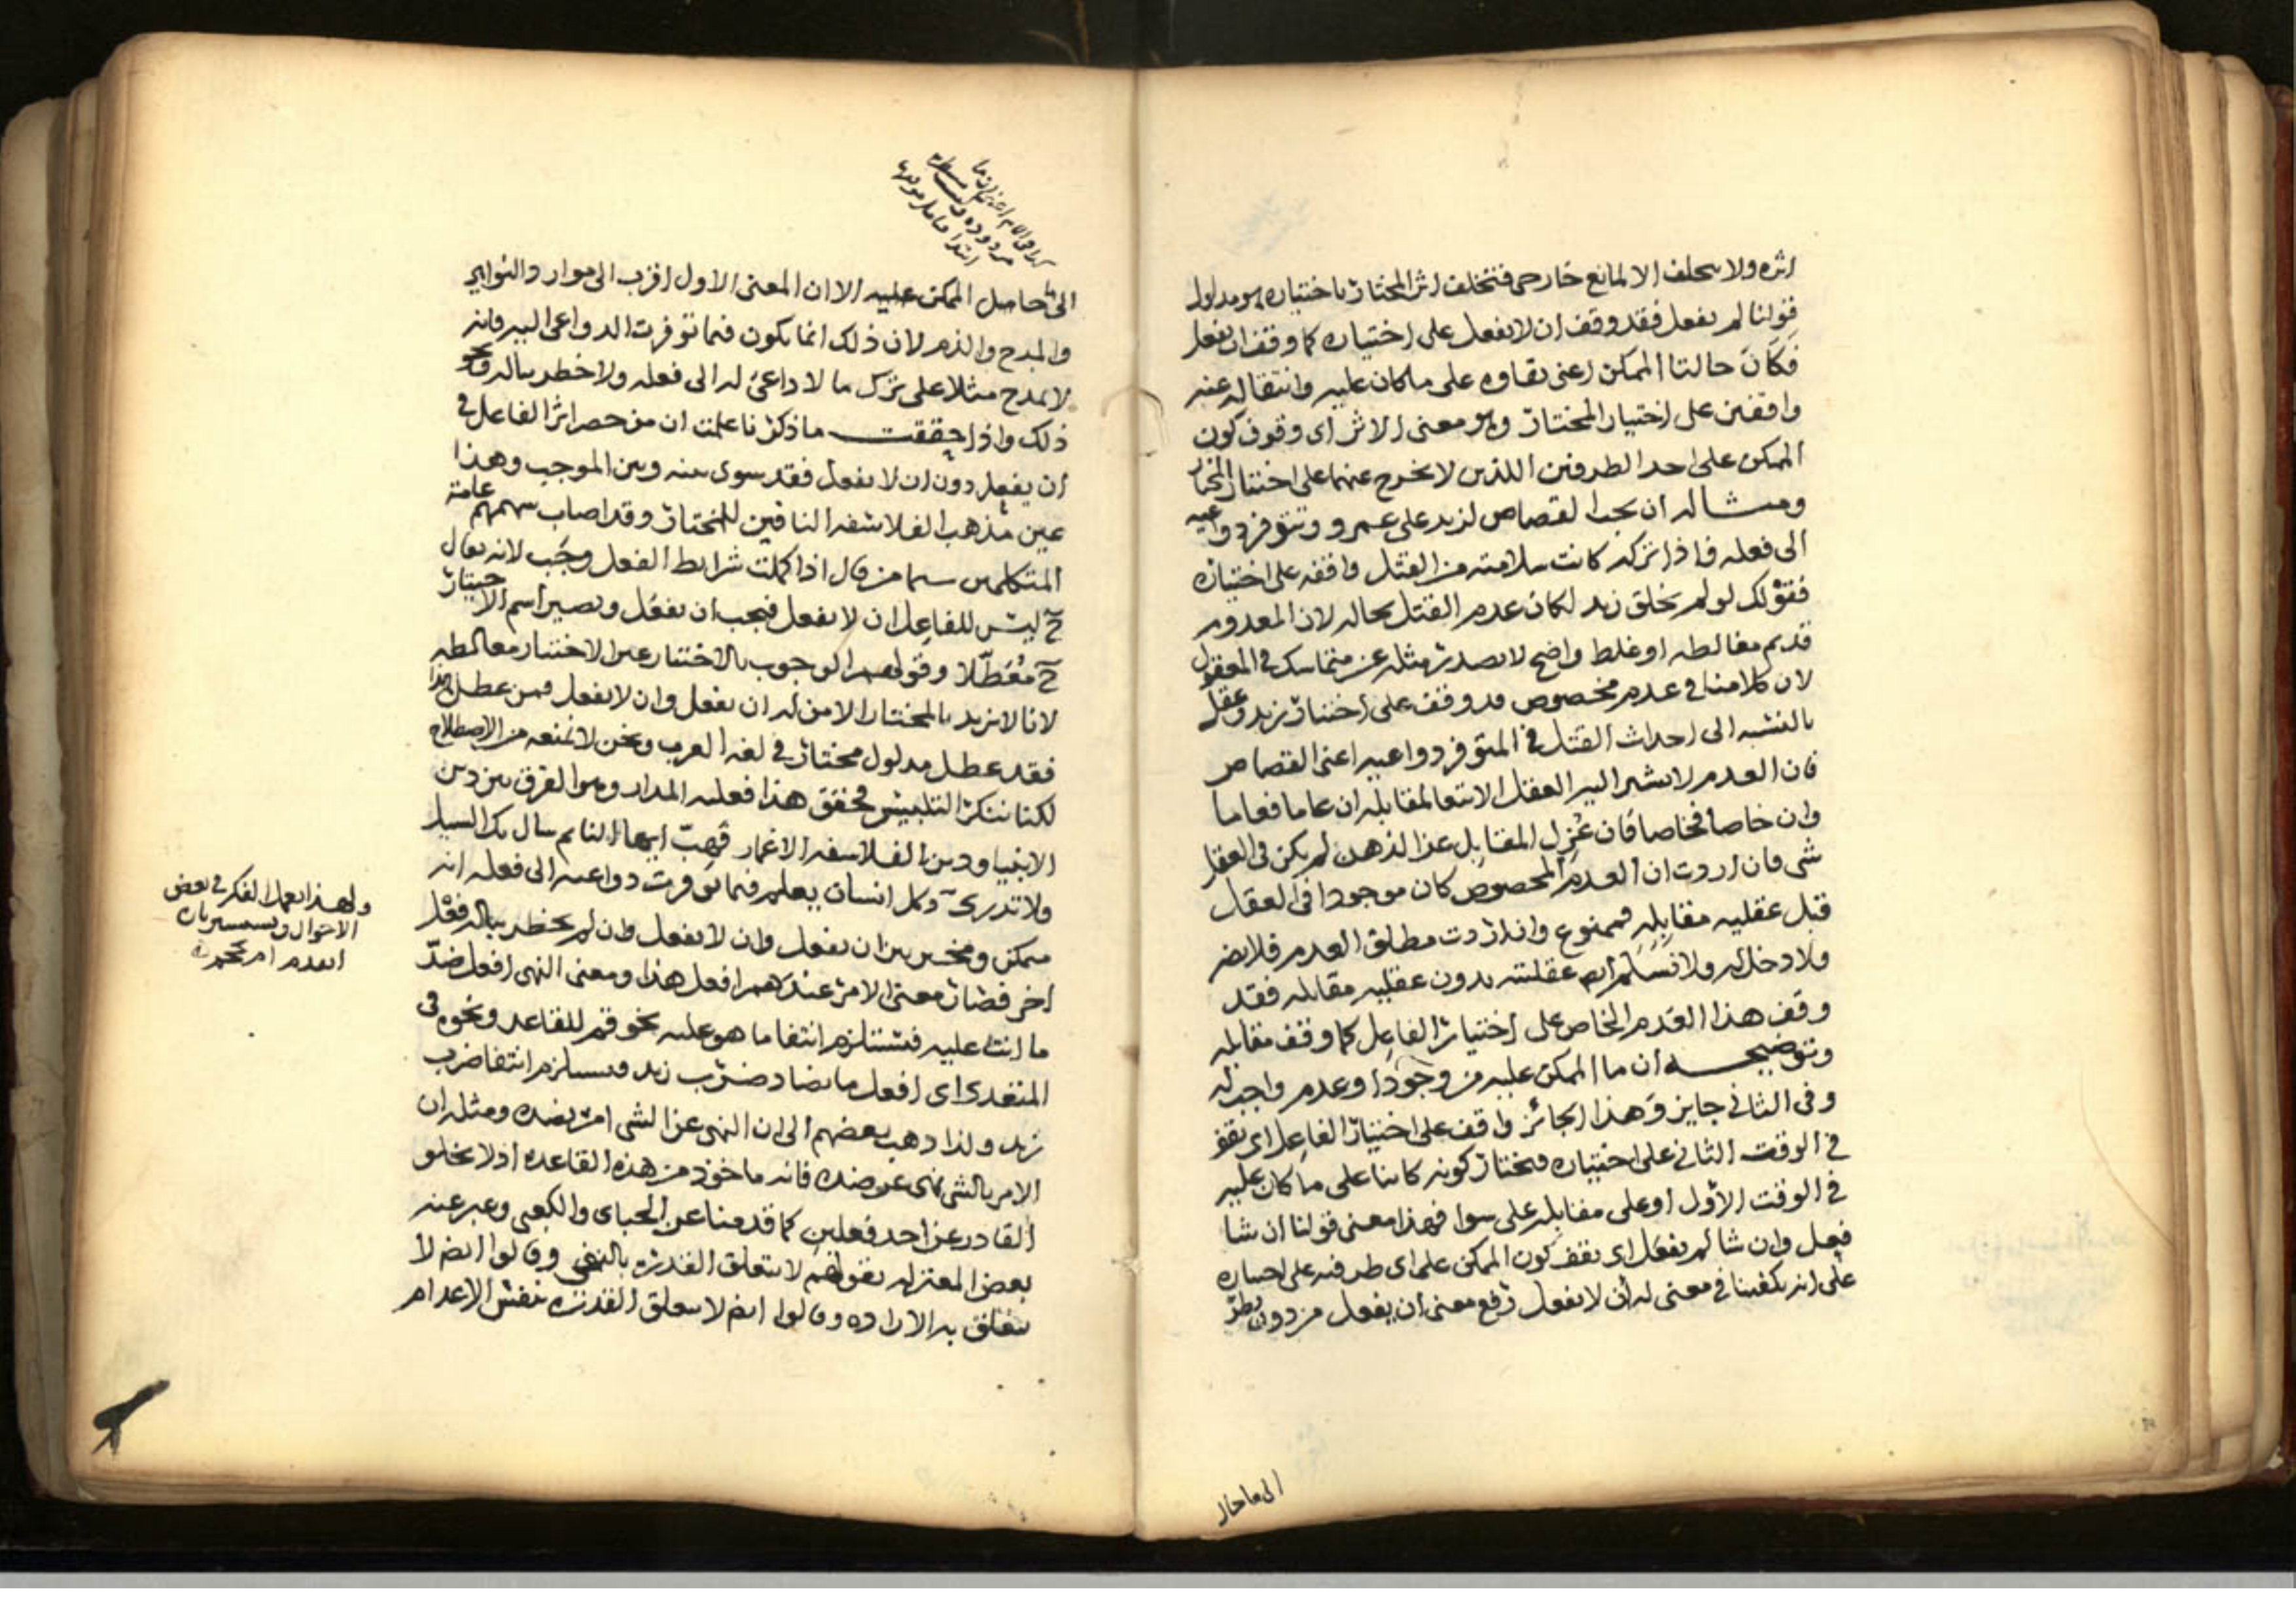 اثره ولا يتخلف الا لمانع خارجى فتخلف اثر المختار باختياره هو مدلول
قولنا لم يفعل فقد وقف ان لا يفعل على اختياره كما وقف ان يفعل
فكان حالتا الممكن اعنى بقاوه على ما كان عليه وانتقاله عنه
واقفين على اختيار المختار وهو معنى الاثر اى وقوف كون
الممكن على احد الطرفين اللذين لا يخرج عنهما على اختيار المختار
ومثاله ان يجب القصاص لزيد على عمرو وتتوفر دواعيه
الى فعله فاذا تركه كانت سلامته من القتل واقفه على اختياره
فقولك لو لم يخلق زيد لكان عدم القتل بحاله لان المعدوم
قديم مغالطه او غلط واضح لا يصدر مثله عن متماسك فى المعقول
لان كلامنا فى عدم مخصوص قد وقف على اختيار زيد وعقل
بالنسبه الى احداث القتل فى المتوفر دواعيه اعنى القصاص
فان العدم لا يشير اليه العقل الا تبعا لمقابله ان عاما فعاما
وان خاصا فخاصا فان عزل المقابل عن الذهن لم يكن فى العقل
شى فان اردت ان العدم المخصوص كان موجودا فى العقل
قبل عقليه مقابله فممنوع وان اردت مطلق العدم فلا يضر
ولا دخل له ولا نسلم ايضا عقليته بدون عقليه مقابله فقد
وقف هذا العدم الخاص على اختيار الفاعل كما وقف مقابله
وتوضيحه ان ما الممكن عليه من وجود او عدم واجب له
وفى الثانى جايز وهذا الجائز واقف على اختيار الفاعل اى يقف
فى الوقت الثانى على اختياره فيختار كونه كاينا على ما كان عليه
فى الوقت الأول او على مقابله على سوا فهذا معنى قولنا ان شا
فعل وان شا لم يفعل اى يقف كون الممكن على اى طرفيه على اختياره
على انه يكفينا فى معنى له أن لا يفعل رفع معنى ان يفعل من دون نظر
الى ما حال
الى حاصل الممكن عليه الا ان المعنى الاول اقرب الى موارد الثواب
والمدح والذم لان ذلك انما يكون فيما توفرت الدواعى اليه فانه
لا يمدح مثلا على ترك ما لا داعى له الى فعله ولا خطر بباله ونحو
ذلك واذا حققت ما ذكرنا علمت ان من حصر اثر الفاعل فى
ان يفعل دون ان لا يفعل فقد سوى بينه وبين الموجب وهذا
عين مذهب الفلاسفه النافين للمختار وقد اصاب سهمهم عامة
المتكلمين سيما من قال اذا كملت شرايط الفعل وجب لانه يقال
ح ليس للفاعل ان لا يفعل فيجب ان يفعل ويصير اسم الاختيار
ح معطلا وقولهم الوجوب بالاختيار عين الاختيار مغالطه
لانا لا نريد بالمختار الا من له ان يفعل وان لا يفعل فمن عطل هذا
فقد عطل مدلول مختار فى لغه العرب ونحن لا نمنعه من الاصطلاح
لكنا ننكر التلبيس فحقق هذا فعليه المدار وهو الفرق بين دين
الانبيا ودين الفلاسفه الاغمار فهب ايها النايم سال بك السيل
ولا تدرى وكل انسان يعلم فيما توفرت دواعيه الى فعله انه
ممكن ومخير بين ان يفعل وان لا يفعل وان لم يخطر بباله فعل
اخر فصار معنى الامر عندهم افعل هذا ومعنى النهى افعل ضد
ما انت عليه فيستلزم انتفا ما هو عليه نحو قم للقاعد ونحوه فى
المتعدى اى افعل ما يضاد ضرب زيد فيستلزم انتفا ضرب
زيد ولذا ذهب بعضهم الى ان النهى عن الشى امر بضده ومثله ان
الامر بالشى نهى عن ضده فانه ماخوذ من هذه القاعده اذ لا يخلو
القادر عن احد فعلين كما قدمنا عن الجباى والكعبى وعبر عنه
بعض المعتزله بقولهم لا يتعلق القدره بالنفى وقالوا ايضا لا
يتعلق به الاراده وقالوا ايضا لا يتعلق القدره بنفس الاعدام
ولهذا يعمل الفكر فى بعض
الاحوال
العدم ام